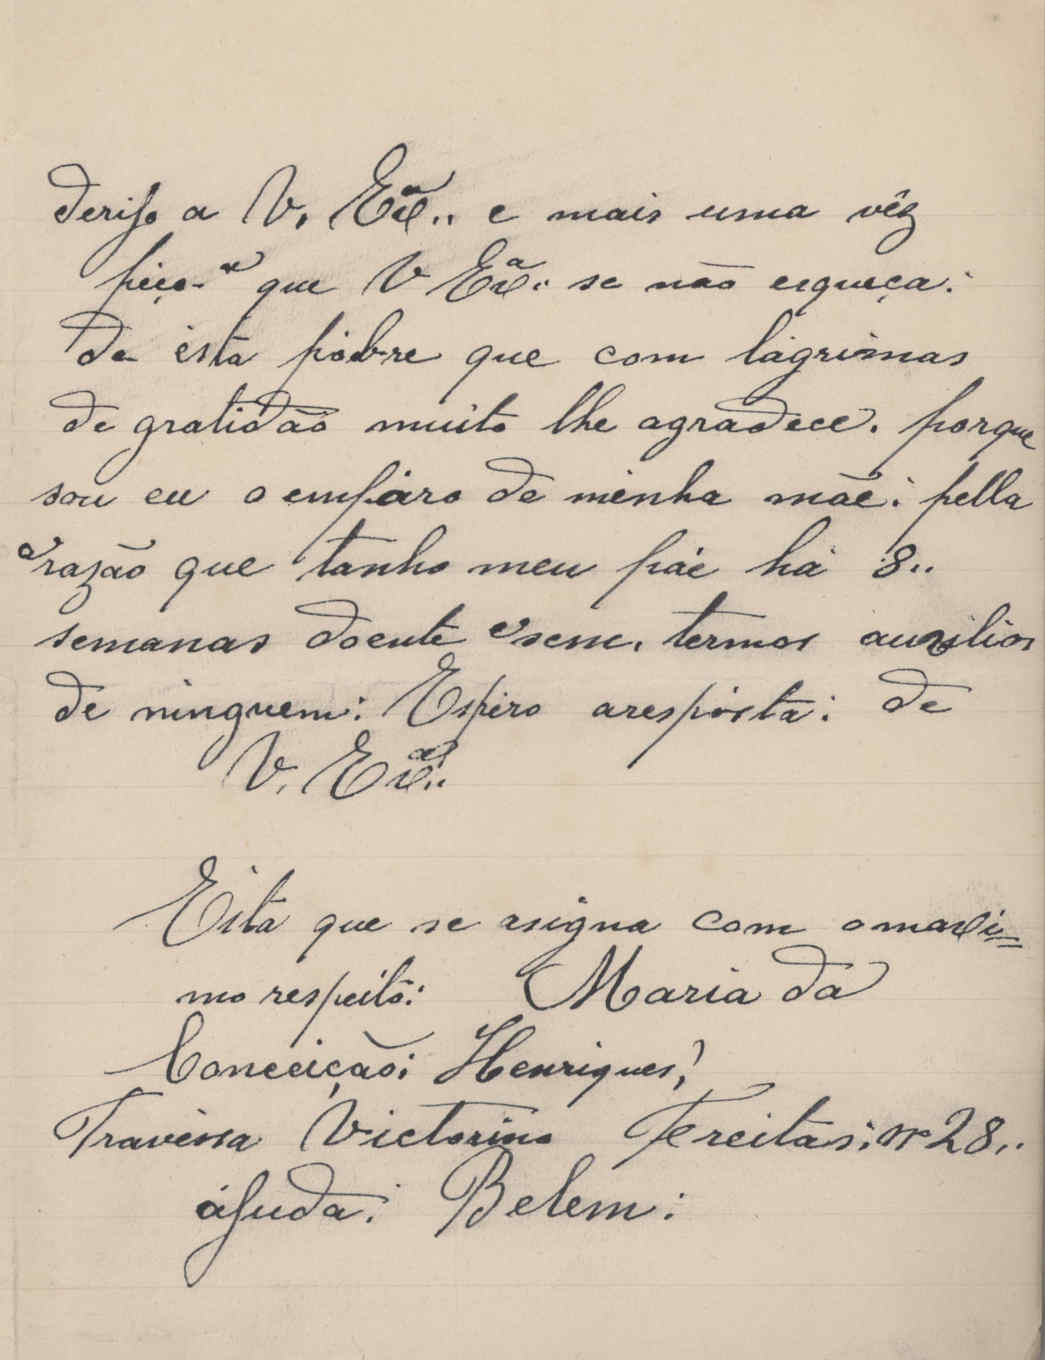 derijo a V. Exª.. e mais uma vêz
peço que V Exª. se não esqueça:
de ésta póbre que com lágrimas
de gratidão muito lhe agradece. porque
sou eu o emparo de minha mãe: pella
razão que tanho meu páe há 8..
semanas doente e sem. termos auxilios
de ninguem: Espero arespósta: de
V. Exª..
Ésta que se asigna com o maxi=
mo respeito: Maria da
Conceição: Henriques,
Travéssa Victorino Freitas: nº 28..
ájuda: Belem: